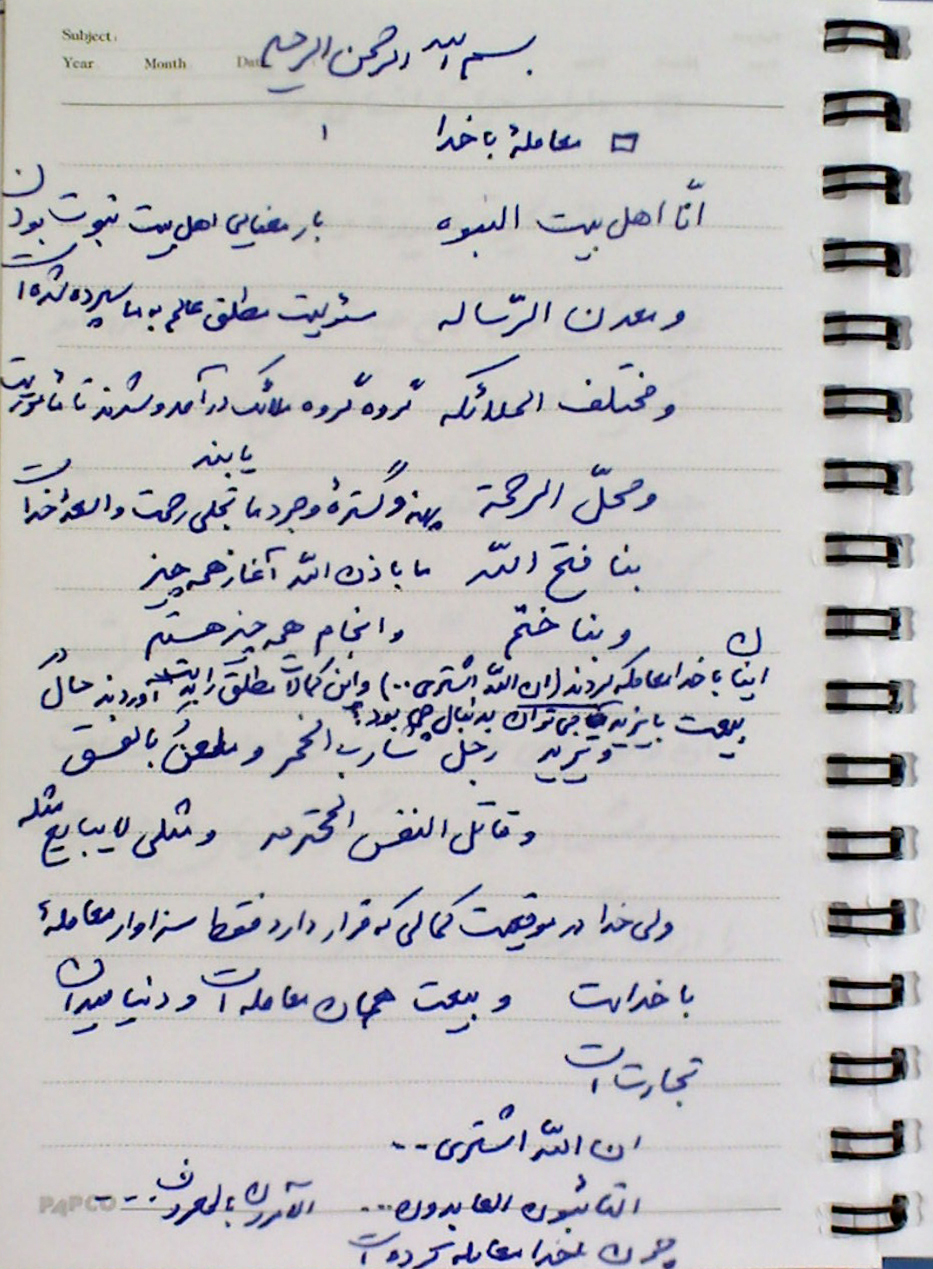 Subject:
Year Month Date
بسم الله الرحمن الرحیم
معاملهٔ با خدا ۱
انّا اهل بیت النبوه بار معنایی اهل بیت نبوت بودن
و معدن الرّساله مسئولیت مطلق عالم به ما سپرده شده است
و مختلف الملائکه گروه گروه ملائک در آمد و شدند تا مأموریت
یابند
و محلّ الرحمة پهنه و گسترهٔ وجود ما تجلی رحمت واسعهٔ خداست
بنا فتح الله ما باذن الله آغاز همه چیز
و بنا ختم و انجام همه چیز هستیم
اینان با خدا معامله کردند (ان الله اشتری ..) و این کمالات مطلق را بدست آوردند حال در
بیعت با یزید می توان بدنبال چه بود؟
و یزید رجل شارب الخمر و معلن بالفسق
و قاتل النفس المحترمه و مثلی لا یبایع مثله
ولی خدا در موقعیت کمالی که قرار دارد فقط سزاوار معاملهٔ
با خداست و بیعت همان معامله است و دنیا میدان
تجارت است
ان الله اشتری ...
التائبون العابدون ... الآمرون بالمعروف ...
چون با خدا معامله کرده است
PAPCO